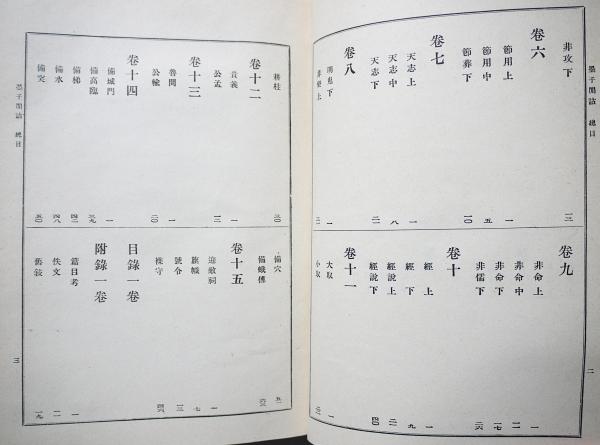 非攻下 一三
卷六
節用上 一
節用中 五
節葬下 一〇
卷七
天志上 一
天志中 八
天志下
卷八
明鬼下 一
非樂上
卷九
非命上 一
非命中
非命下
非儒下
卷十
經上 一
經下 九
經說上
經說下
卷十一
大取 一
小取
二
墨子閒詁 總目
耕柱
卷十二
貴義 一
公孟
卷十三
魯問 一
公輸
卷十四
備城門 一
備高臨
備梯
備水
備突
備穴
備蛾傅
卷十五
迎敵祠 一
旗幟 七
號令 一三
襍守
目錄一卷
附錄一卷
篇目考 一
佚文 一一
舊敍 一九
墨子閒詁 總目
三